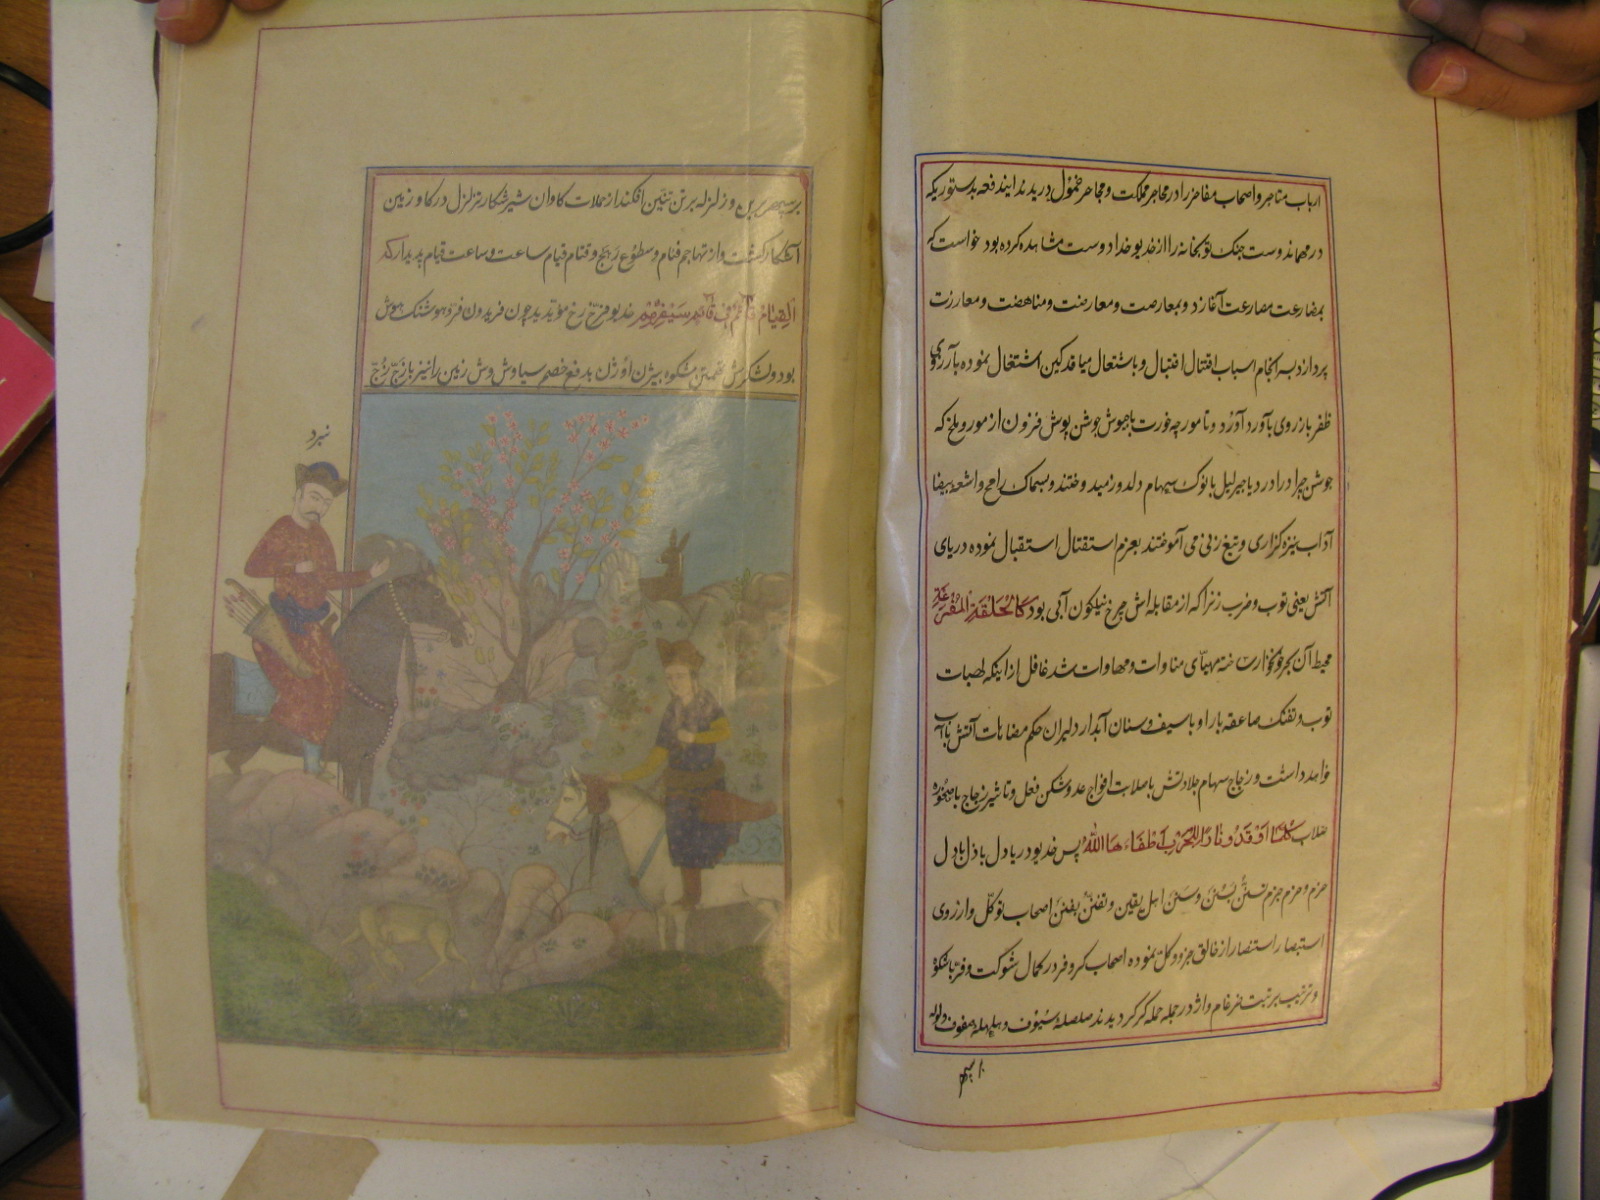 ارباب مناصر و اصحاب مفاخر را در محاجر مملکت و محاجر خمول دریدند ایندفعه بدستوریکه
در مهماندوست جنک توبخانه را از خدیو خدا دوست مشاهده کرده بود خواست که
بمضارعت مصارعت آغازد و بمعارضت و معارضت و مناهضت و مبارزت
پردازد بسرانجام اسباب اقتتال اقتبال و باشتعال میافد کین اشتغال نموده بآرزوی
ظفر باز روی بآورد آورد و تا مورچه خورت با جیوش جوشن پوش فزون از مور و ملخ که
جوشن چرا در با جبرئیل با نوک سهام دلدوز میدوختند و بسماک رامح و اشعهٔ بیضا
آداب نیزه گزاری و تیغ زنی می آموختند بعزم استقتال استقبال نموده دریای
آتش یعنی توب و ضرب زنرا که از مقابله اش چرخ نیلکون آبی بود کالحلقة المفرغة
محیط آن بحر خونخوار ساخته مهیای مناوات و مهاوات شد غافل از اینکه لهبات
توب و تفنک صاعقه بار او با سیف و سنان آبدار دلیران حکم مضاهات آتش با آب
خواهد داشت و زجاج سهام جلادتش با صلابت افواج عدو شکن فعل و تاثیر زجاج با صخوره
صلاب کلما اوقدوا نارا للحرب اطفاءها الله پس خدیو دریا دل باذل بادل
حزم و حزم جزم تسنن بسنن و سنن اهل یقین و تفنن بفنن اصحاب توکل و ارزوی
استبصار استنصار از خالق جزو و کل نموده اصحاب کر و فر در کمال شوکت و فر باشکوه
و ترتیب بر تبت ضرغام واژ در جمله حمله کر کردیدند صلصلهٔ سیوف و هلهلهٔ صفوف ولوله
بر سپهر برین و زلزله بر تن تنین افکند از حملات کاوان شیر شکار تزلزل در کاو زمین
آشکار کشت و از تهاجم فنام و سطوع رهج و قتام قیام ساعت و ساعت قیام پدیدار کد
القیام قائم فی قائم سیفهم خدیو فرخ رخ مؤید چون فریدون فر هوشنک هوش
بود و لشکرش تهمتن شکوه بیژن اوژن بدفع خصم سیاوش وش زمین را نیز بازج زج
نبرد